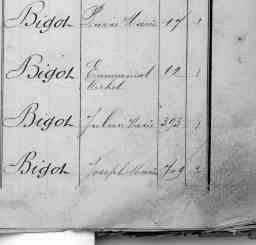 Bigot Pierre Marie 17 1
Bigot Emmanuel
Michel 12 1
Bigot Julien Marie 393 1
Bigot Joseph Marie 709 2